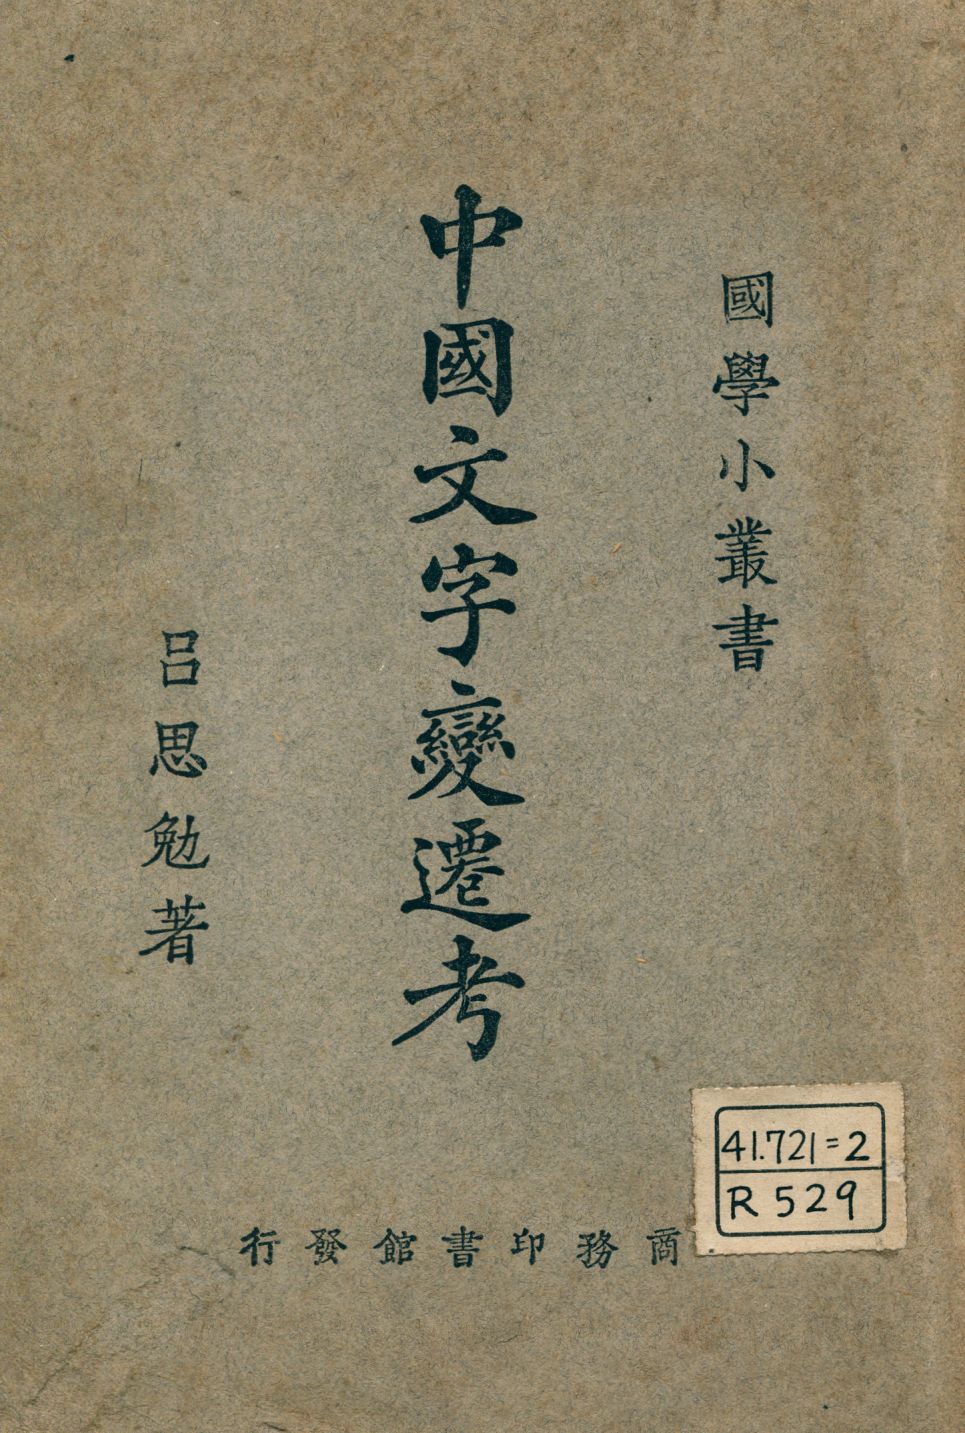 國學小叢書
中國文字變遷考
呂思勉著
商務印書館發行
41.721=2
R 529